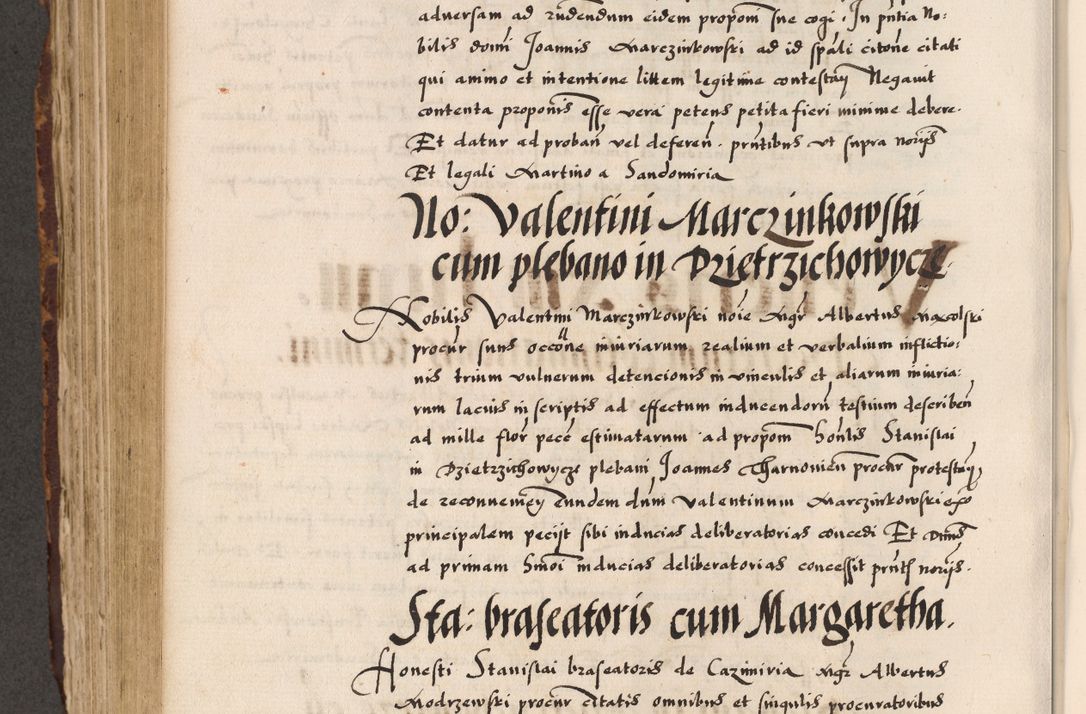 adversam ad rūdendum eidem propom̄ sue cogi. In pn̄tia No:
bilis domī Joannis Marczinkowski ad id spāli citōne citati
qui animo et intentione littem legitime contestan̄ Negavit
contenta propōnis esse vera petens petita fieri minime debere.
Et datur ad proban̄ vel deferen̄. pn̄tibus ut supra noriis
Et legali Martino a Sandomiria
No: Valentini Marczinkowski
cum plebano in Dzietrzichowycze.
Nobilis Valentini Marczinkowski nōie Mgr̄ Albertus
procūr suus occōne iniuriarum realium et verbalium inflictio:
nis trium vulnerum detencionis in vinculis et aliarum iniuria:
rum lacius in scriptis ad effectum inducendorū testium describen̄
ad mille flor̄ pecc̄ estimatarum ad propom̄ hon̄lis Stanislai
in Dzietrzichowycze plebani Joannes Tharnovien̄ procūr protestan̄
de reconven̄ Eundem dūm Valentinum Marczinkowski
principalem peciit sibi inducias deliberatorias concedi Et Dnūs
ad primam hmōi inducias deliberatorias concessit pn̄ts noriis.
Sta: braseatoris cum Margaretha.
Honesti Stanislai braseatoris de Cazimiria Mgr̄ Albertus
Modrzewski procūr citatis omnibus et singulis procuratoribus